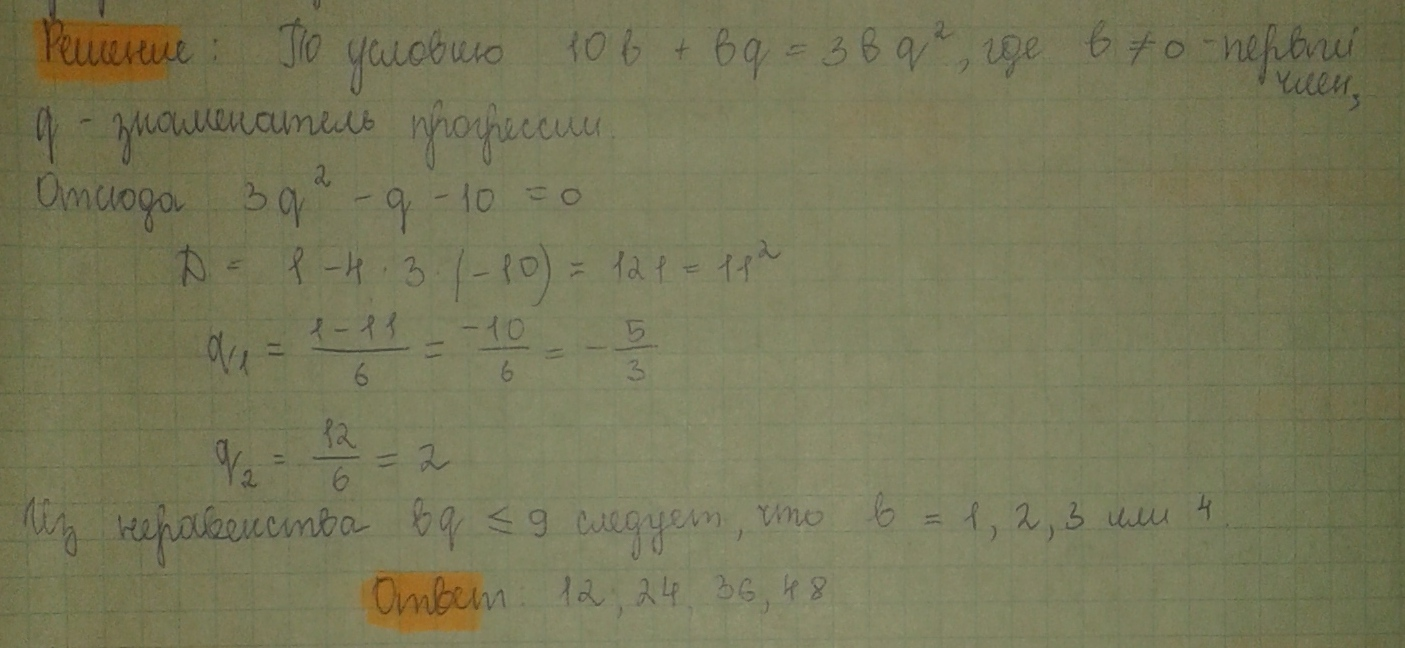 Решение: По условию 10b + bq = 3bq², где b ≠ 0 - первый член,
q - знаменатель прогрессии.
Отсюда 3q² - q - 10 = 0
D = 1 - 4 · 3 · (-10) = 121 = 11²
q₁ = (1 - 11)/6 = -10/6 = -5/3
q₂ = 12/6 = 2
Из неравенства bq ≤ 9 следует, что b = 1, 2, 3 или 4.
Ответ: 12, 24, 36, 48